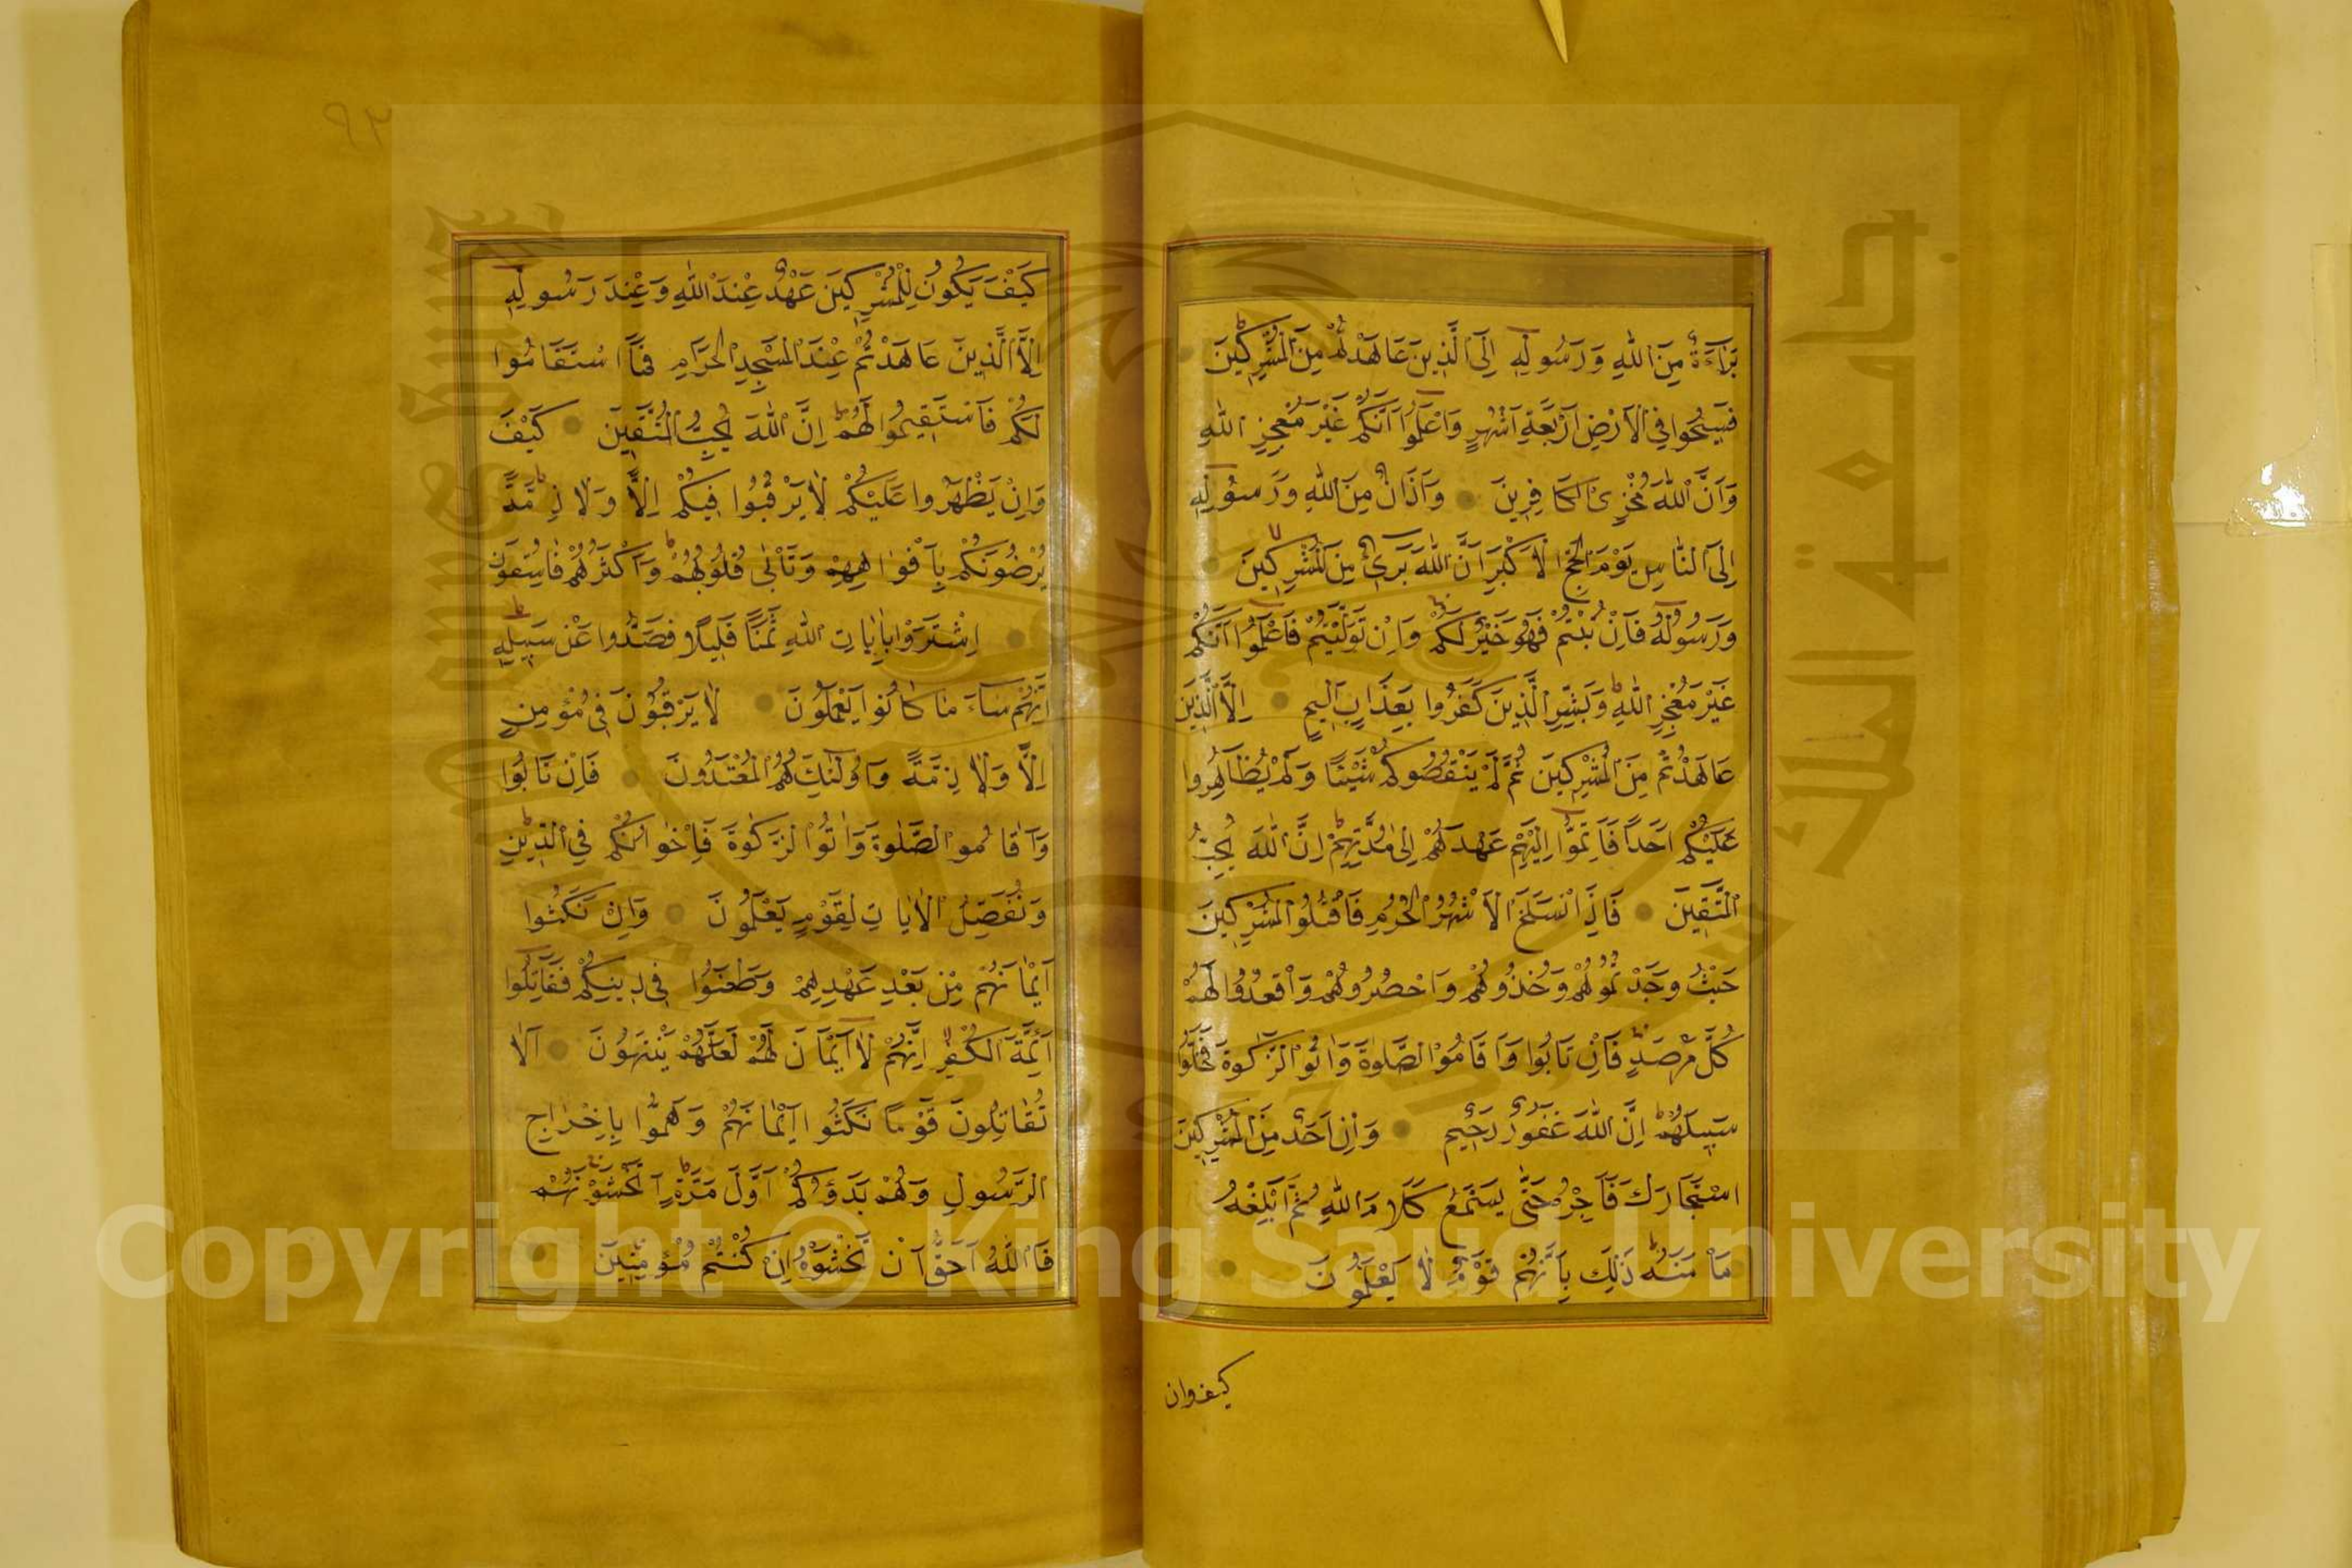 بَرَاءَةٌ مِنَ اللّٰهِ وَرَسُولِهِ اِلَى الَّذِينَ عَاهَدْتُمْ مِنَ الْمُشْرِكِينَ
فَسِيحُوا فِي الْاَرْضِ اَرْبَعَةَ اَشْهُرٍ وَاعْلَمُوا اَنَّكُمْ غَيْرُ مُعْجِزِي اللّٰهِ
وَاَنَّ اللّٰهَ مُخْزِي الْكَافِرِينَ وَاَذَانٌ مِنَ اللّٰهِ وَرَسُولِهِ
اِلَى النَّاسِ يَوْمَ الْحَجِّ الْاَكْبَرِ اَنَّ اللّٰهَ بَرِيءٌ مِنَ الْمُشْرِكِينَ
وَرَسُولُهُ فَاِنْ تُبْتُمْ فَهُوَ خَيْرٌ لَكُمْ وَاِنْ تَوَلَّيْتُمْ فَاعْلَمُوا اَنَّكُمْ
غَيْرُ مُعْجِزِي اللّٰهِ وَبَشِّرِ الَّذِينَ كَفَرُوا بِعَذَابٍ اَلِيمٍ اِلَّا الَّذِينَ
عَاهَدْتُمْ مِنَ الْمُشْرِكِينَ ثُمَّ لَمْ يَنْقُصُوكُمْ شَيْئًا وَلَمْ يُظَاهِرُوا
عَلَيْكُمْ اَحَدًا فَاَتِمُّوا اِلَيْهِمْ عَهْدَهُمْ اِلٰى مُدَّتِهِمْ اِنَّ اللّٰهَ يُحِبُّ
الْمُتَّقِينَ فَاِذَا انْسَلَخَ الْاَشْهُرُ الْحُرُمُ فَاقْتُلُوا الْمُشْرِكِينَ
حَيْثُ وَجَدْتُمُوهُمْ وَخُذُوهُمْ وَاحْصُرُوهُمْ وَاقْعُدُوا لَهُمْ
كُلَّ مَرْصَدٍ فَاِنْ تَابُوا وَاَقَامُوا الصَّلٰوةَ وَاٰتَوُا الزَّكٰوةَ فَخَلُّوا
سَبِيلَهُمْ اِنَّ اللّٰهَ غَفُورٌ رَحِيمٌ وَاِنْ اَحَدٌ مِنَ الْمُشْرِكِينَ
اسْتَجَارَكَ فَاَجِرْهُ حَتّٰى يَسْمَعَ كَلَامَ اللّٰهِ ثُمَّ اَبْلِغْهُ
مَاْمَنَهُ ذٰلِكَ بِاَنَّهُمْ قَوْمٌ لَا يَعْلَمُونَ
كيف وان
٩٢
كَيْفَ يَكُونُ لِلْمُشْرِكِينَ عَهْدٌ عِنْدَ اللّٰهِ وَعِنْدَ رَسُولِهِ
اِلَّا الَّذِينَ عَاهَدْتُمْ عِنْدَ الْمَسْجِدِ الْحَرَامِ فَمَا اسْتَقَامُوا
لَكُمْ فَاسْتَقِيمُوا لَهُمْ اِنَّ اللّٰهَ يُحِبُّ الْمُتَّقِينَ كَيْفَ
وَاِنْ يَظْهَرُوا عَلَيْكُمْ لَا يَرْقُبُوا فِيكُمْ اِلًّا وَلَا ذِمَّةً
يُرْضُونَكُمْ بِاَفْوَاهِهِمْ وَتَاْبٰى قُلُوبُهُمْ وَاَكْثَرُهُمْ فَاسِقُونَ
اِشْتَرَوْا بِاٰيَاتِ اللّٰهِ ثَمَنًا قَلِيلًا فَصَدُّوا عَنْ سَبِيلِهِ
اِنَّهُمْ سَاءَ مَا كَانُوا يَعْمَلُونَ لَا يَرْقُبُونَ فِي مُؤْمِنٍ
اِلًّا وَلَا ذِمَّةً وَاُولٰئِكَ هُمُ الْمُعْتَدُونَ فَاِنْ تَابُوا
وَاَقَامُوا الصَّلٰوةَ وَاٰتَوُا الزَّكٰوةَ فَاِخْوَانُكُمْ فِي الدِّينِ
وَنُفَصِّلُ الْاٰيَاتِ لِقَوْمٍ يَعْلَمُونَ وَاِنْ نَكَثُوا
اَيْمَانَهُمْ مِنْ بَعْدِ عَهْدِهِمْ وَطَعَنُوا فِي دِينِكُمْ فَقَاتِلُوا
اَئِمَّةَ الْكُفْرِ اِنَّهُمْ لَا اَيْمَانَ لَهُمْ لَعَلَّهُمْ يَنْتَهُونَ اَلَا
تُقَاتِلُونَ قَوْمًا نَكَثُوا اَيْمَانَهُمْ وَهَمُّوا بِاِخْرَاجِ
الرَّسُولِ وَهُمْ بَدَؤُكُمْ اَوَّلَ مَرَّةٍ اَتَخْشَوْنَهُمْ
فَاللّٰهُ اَحَقُّ اَنْ تَخْشَوْهُ اِنْ كُنْتُمْ مُؤْمِنِينَ
Copyright © King Saud University